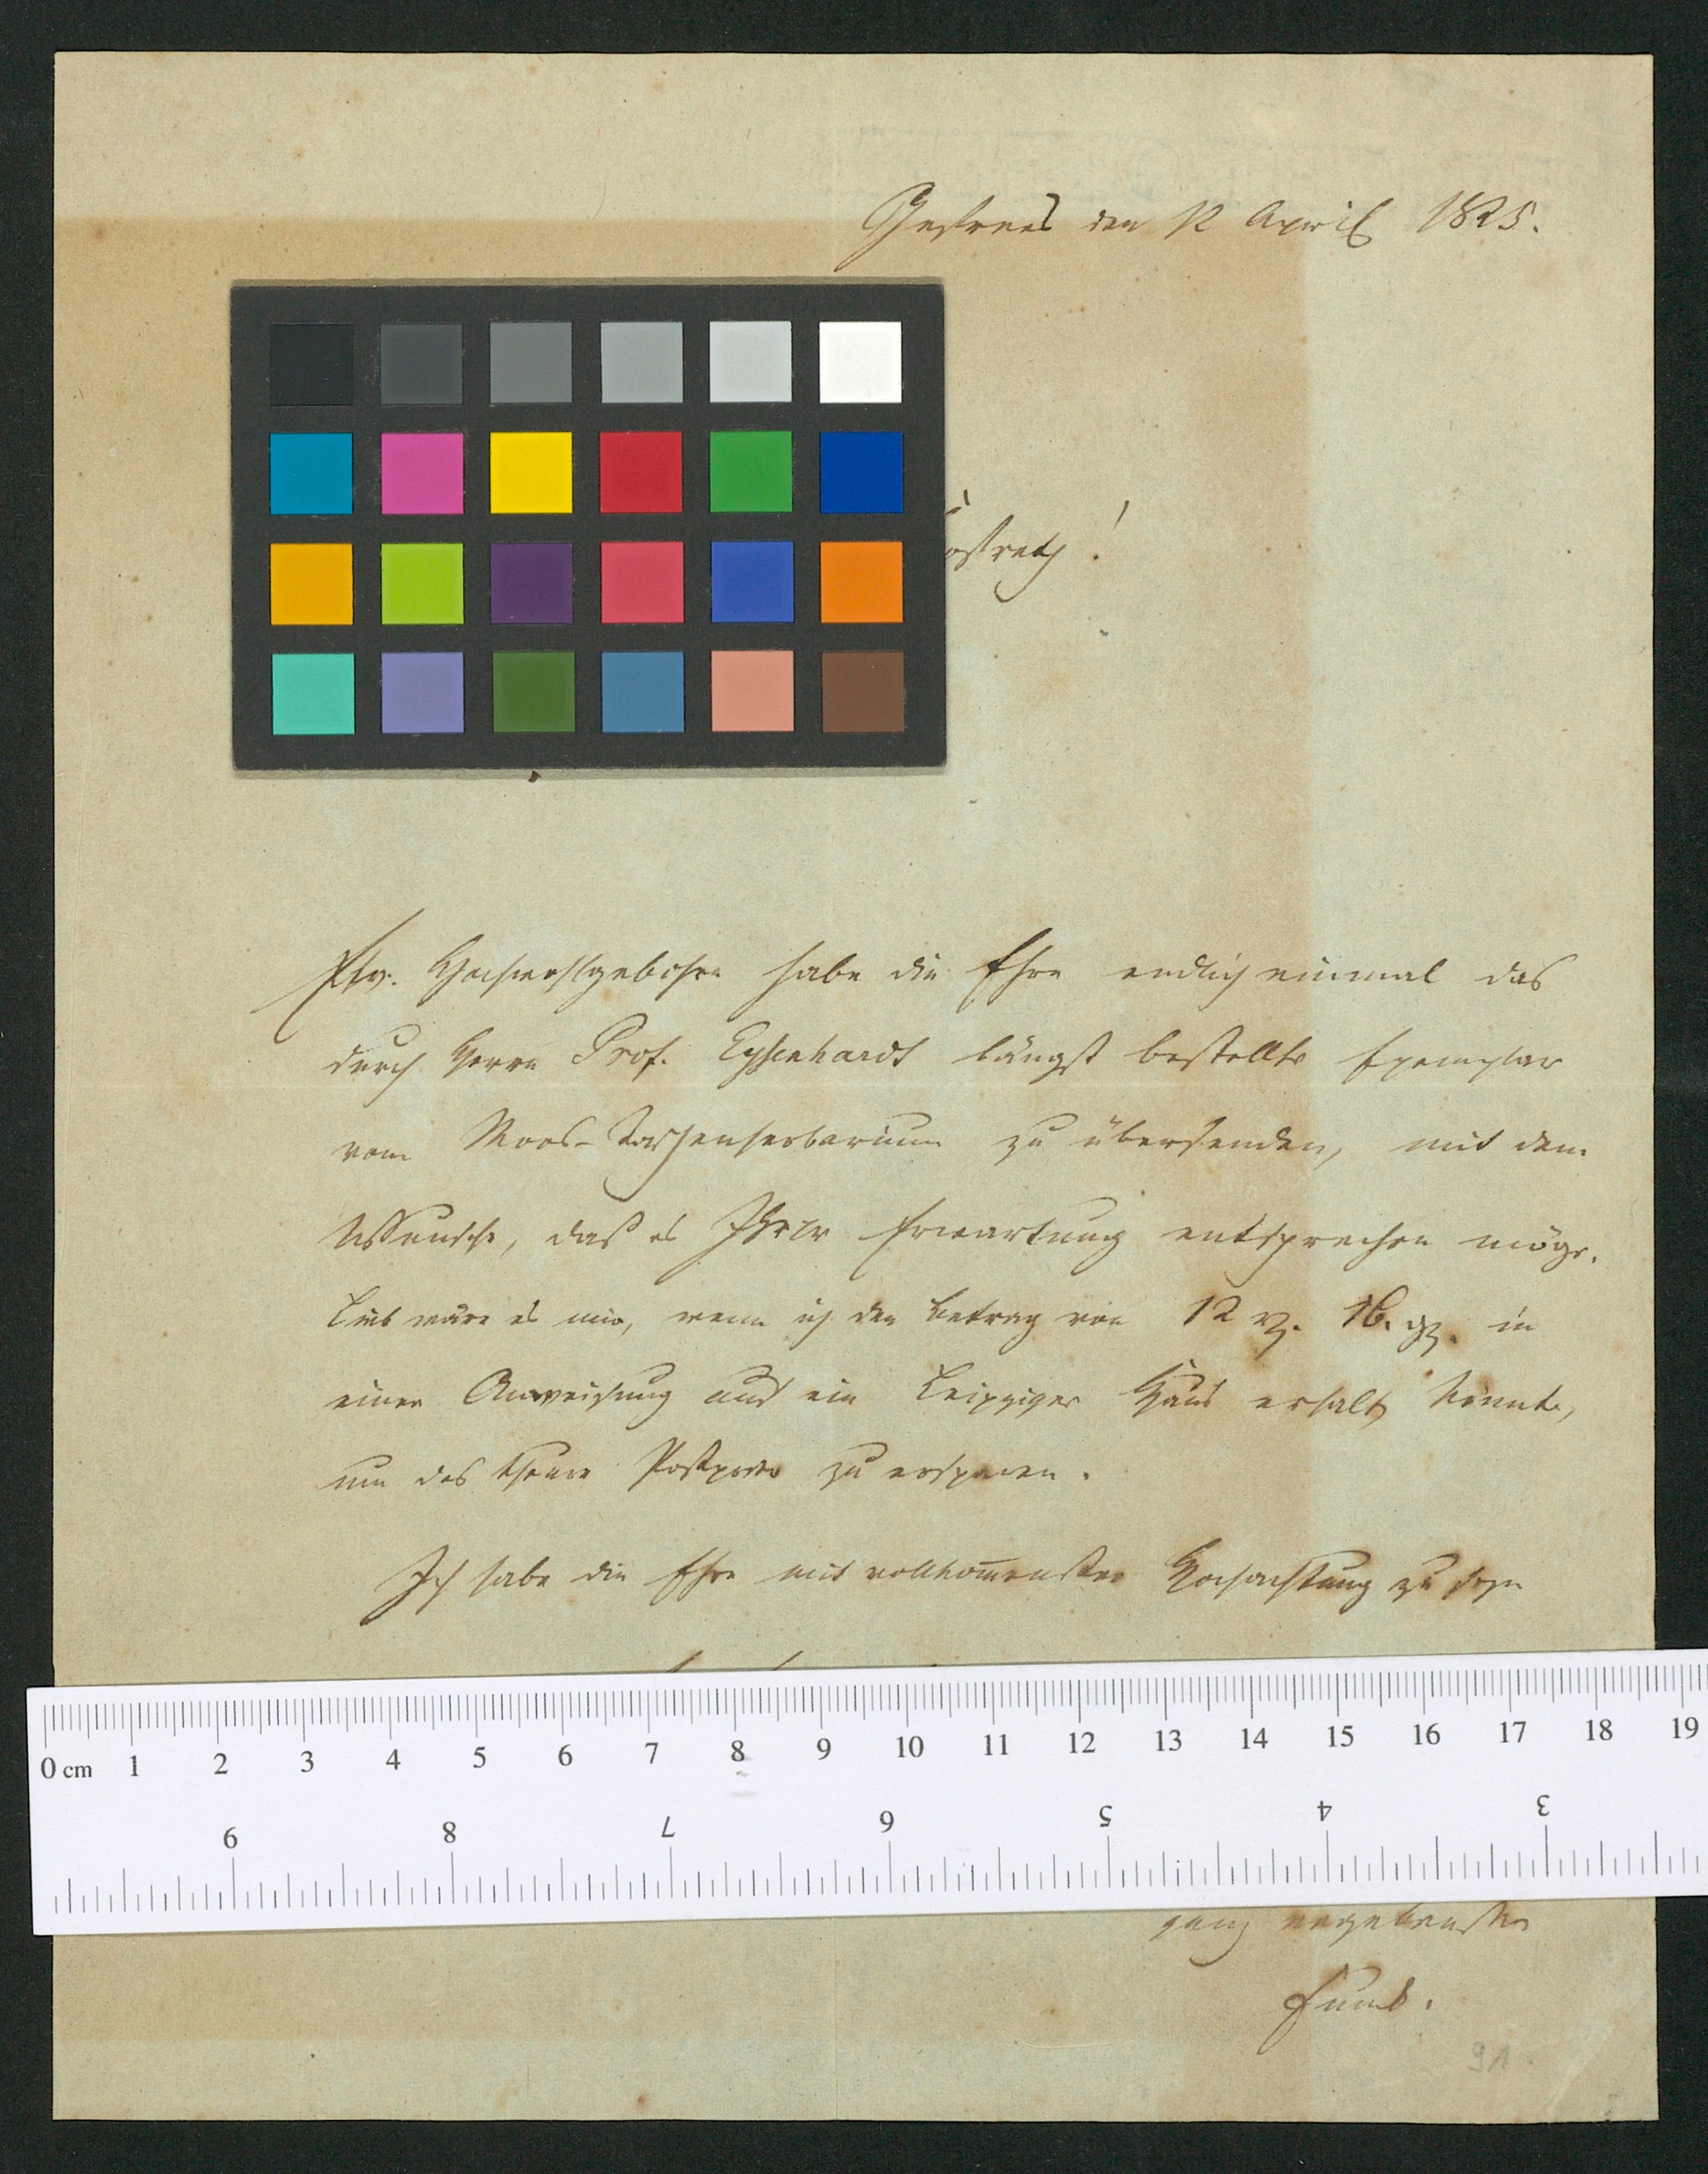 Gefrees den 12 April 1825.
Ew. Hochwohlgebohren habe die Ehre endlich einmal das
durch Herrn Prof. Eysenhardt längst bestellte Exemplar
vom Moos-Taschenherbarium zu übersenden, mit dem
Wunsche, daß es Ihrer Erwartung entsprechen möge.
Lieb wäre es mir, wenn ich den Betrag von 12 16. in
einer Anweisung auf ein Leipziger Haus erhalten könnte,
um das theure Postporto zu ersparen.
Ich habe die Ehre mit vollkom̅enster Hochachtung zu seyn
0 cm 1 2 3 4 5 6 7 8 9 10 11 12 13 14 15 16 17 18 19
9 8 7 6 5 4 3
ganz ergebenster
Funck.
91.